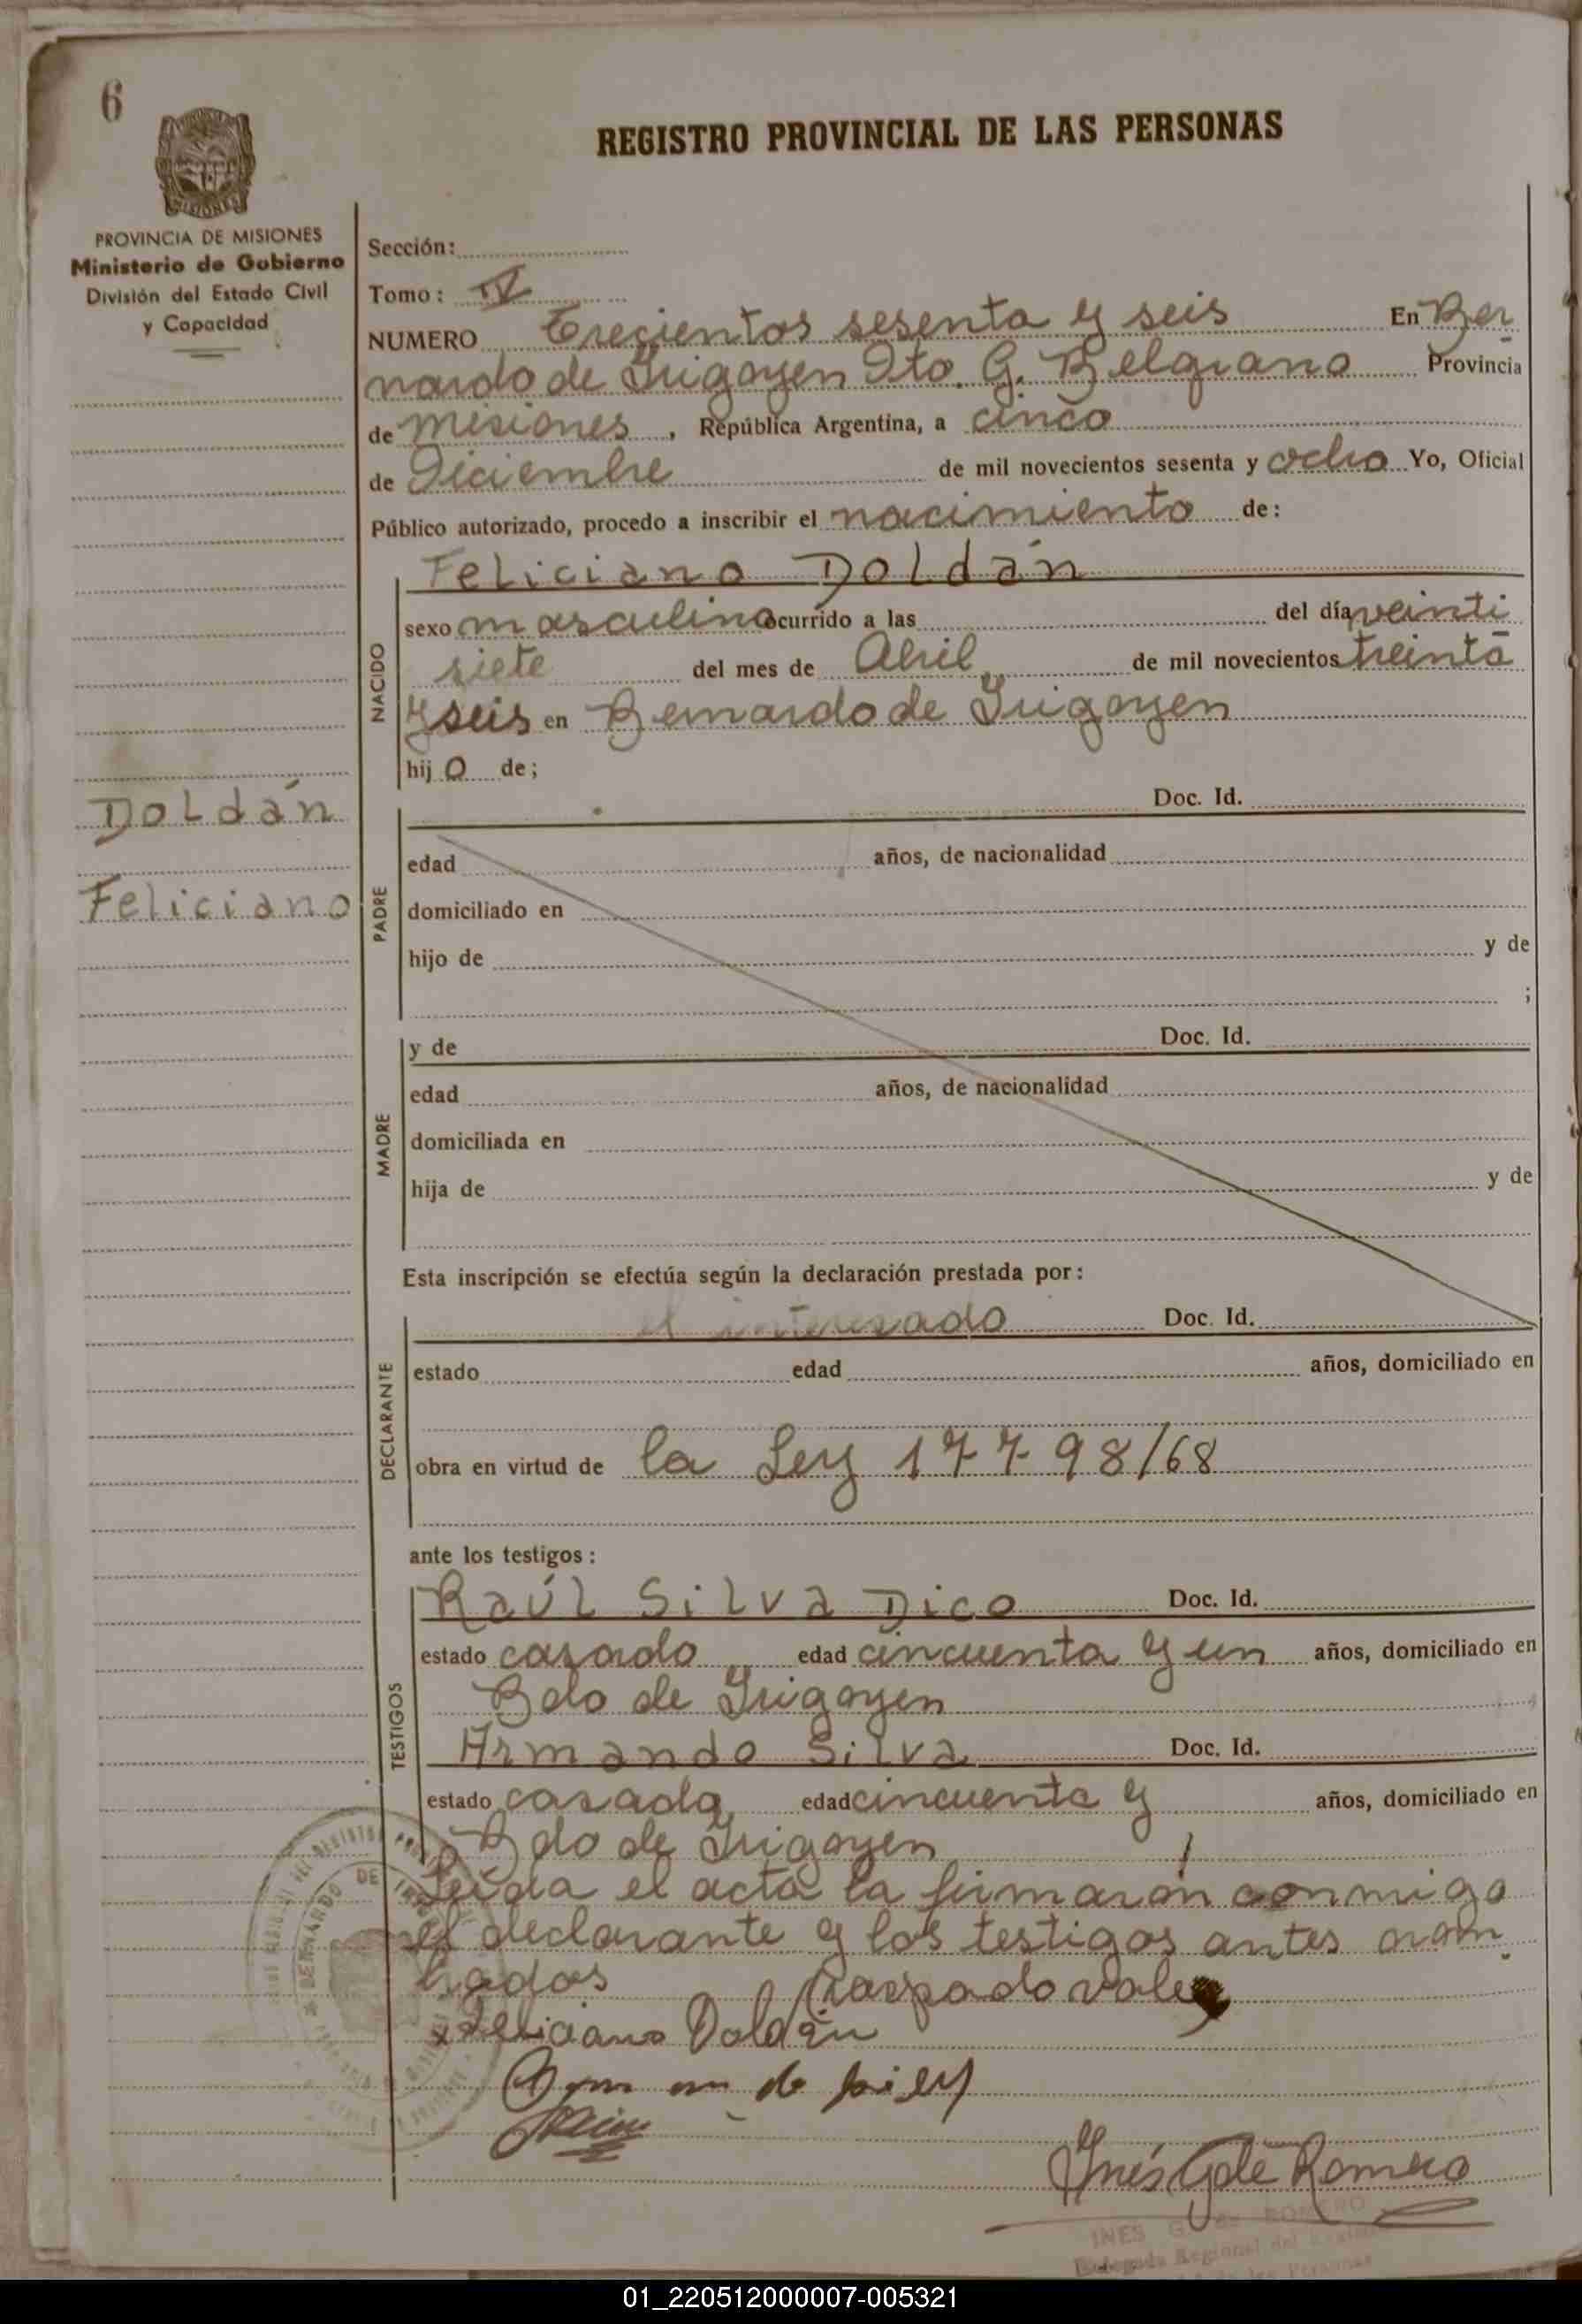 6
REGISTRO PROVINCIAL DE LAS PERSONAS
MISIONES
PROVINCIA DE MISIONES
Ministerio de Gobierno
División del Estado Civil
y Capacidad
Sección:
Tomo: IV
NUMERO Trecientos sesenta y seis En Ber
nardo de Irigoyen Dto. G. Belgrano Provincia
de Misiones, República Argentina, a cinco
de Diciembre de mil novecientos sesenta y ocho Yo, Oficial
Público autorizado, procedo a inscribir el nacimiento de:
Feliciano Doldán
NACIDO
sexo masculino ocurrido a las del día veinti
siete del mes de Abril de mil novecientos treinta
y seis en Bernardo de Irigoyen
hijo de;
Doldán
Feliciano
PADRE
Doc. Id.
edad años, de nacionalidad
domiciliado en
hijo de y de
;
MADRE
y de Doc. Id.
edad años, de nacionalidad
domiciliada en
hija de y de
Esta inscripción se efectúa según la declaración prestada por:
DECLARANTE
el interesado Doc. Id.
estado edad años, domiciliado en
obra en virtud de la Ley 17798/68
ante los testigos:
TESTIGOS
Raúl Silva Dico Doc. Id.
estado casado edad cincuenta y un años, domiciliado en
Bdo de Irigoyen
Armando Silva Doc. Id.
estado casado edad cincuenta y años, domiciliado en
Bdo de Irigoyen
Leída el acta la firmarón conmigo
el declarante y los testigos antes nom
brados Raspado vale
x Feliciano Doldán
Inés G de Romero
INES G. de ROMERO
Delegada Regional del
de las Personas
01_220512000007-005321